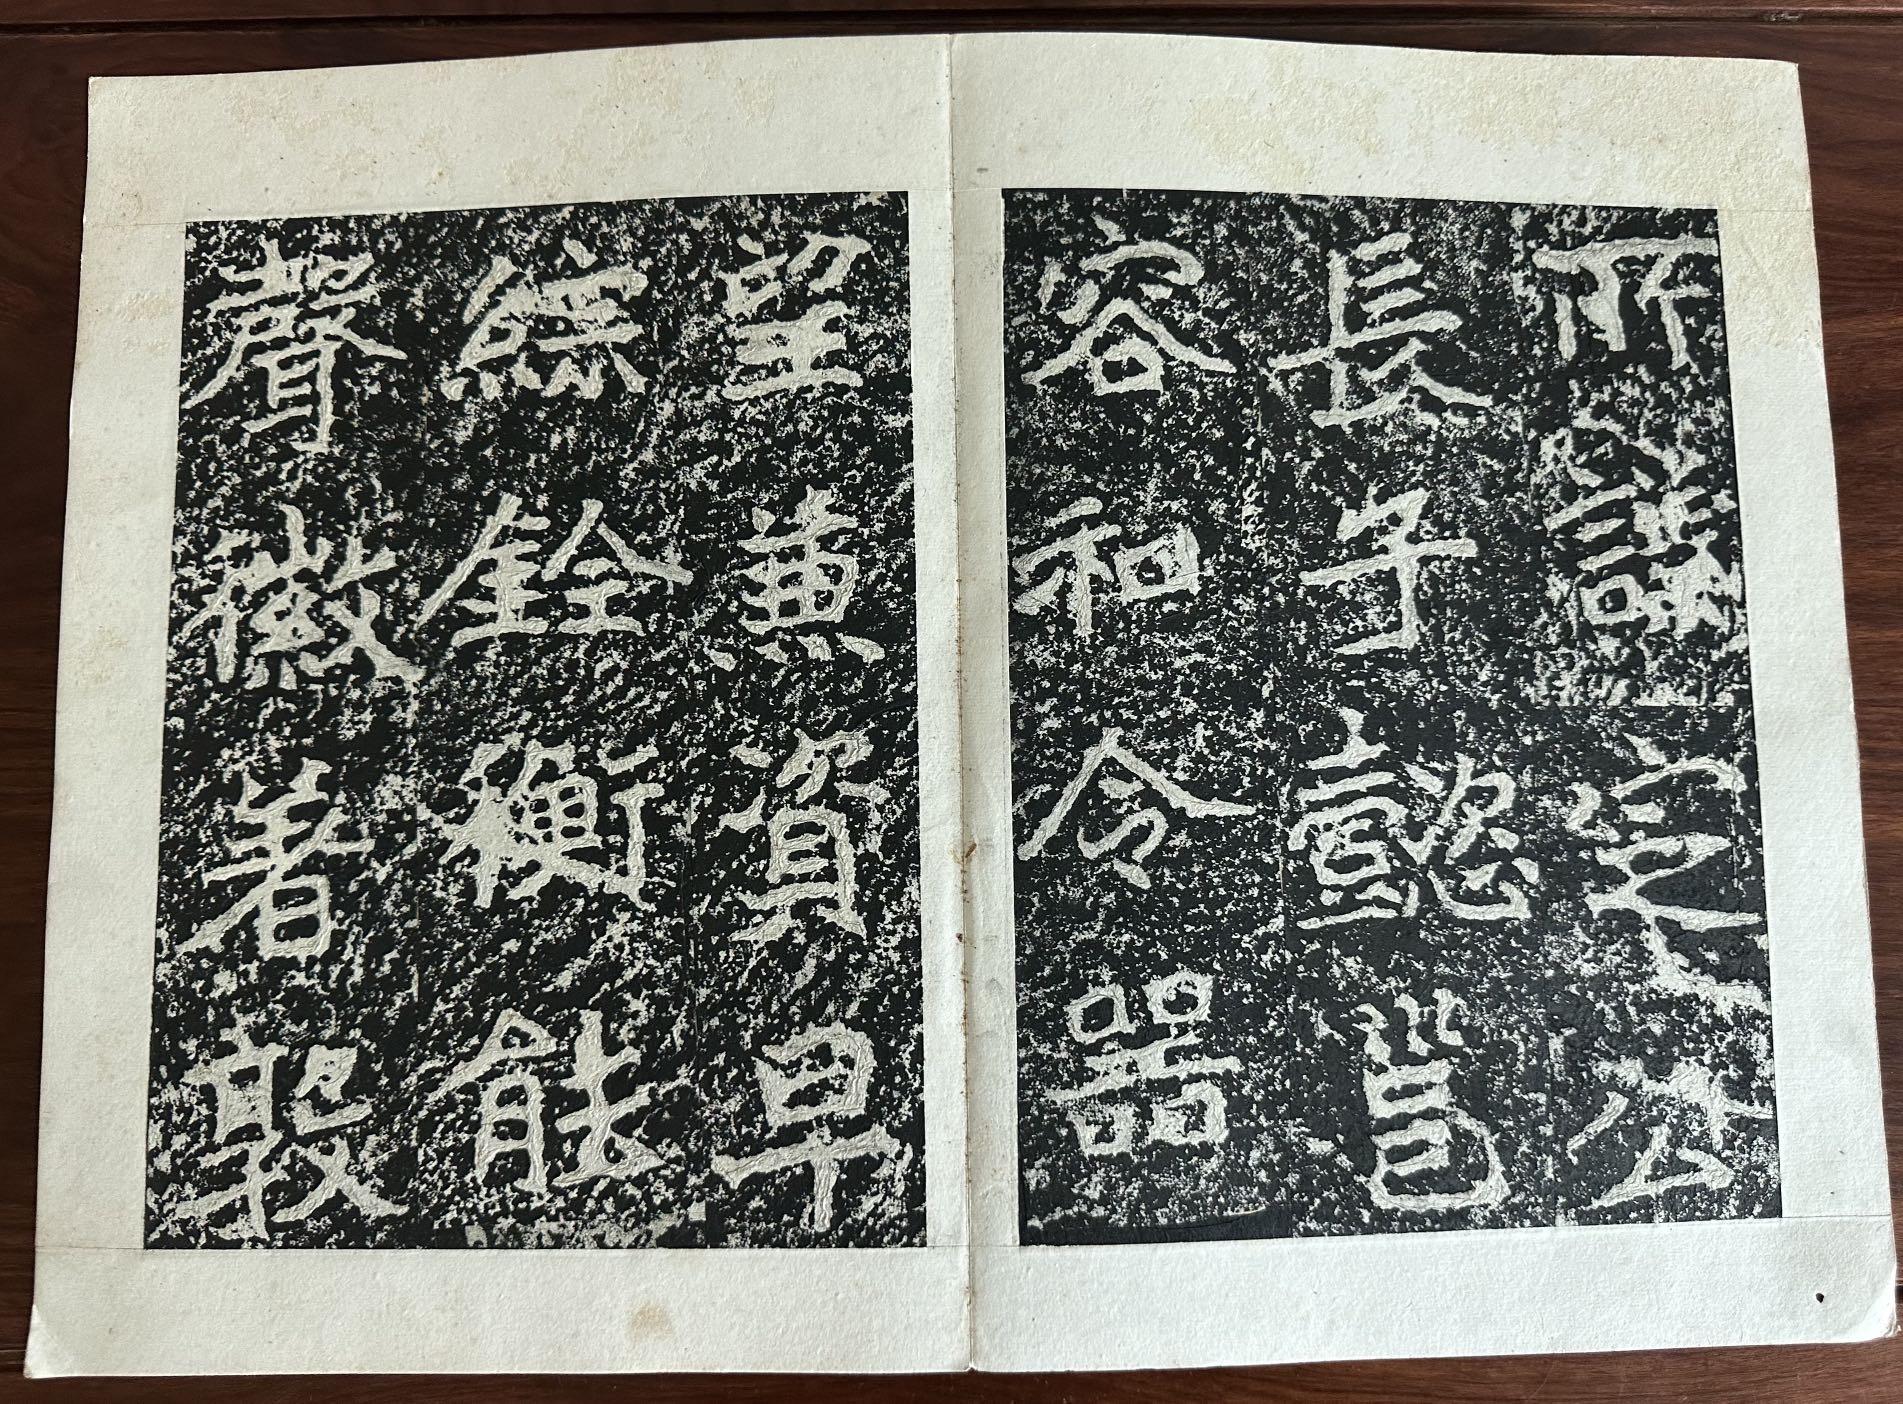 所議定公
長子懿邕
容和令器
望兼資早
綜銓衡能
聲徽著敦